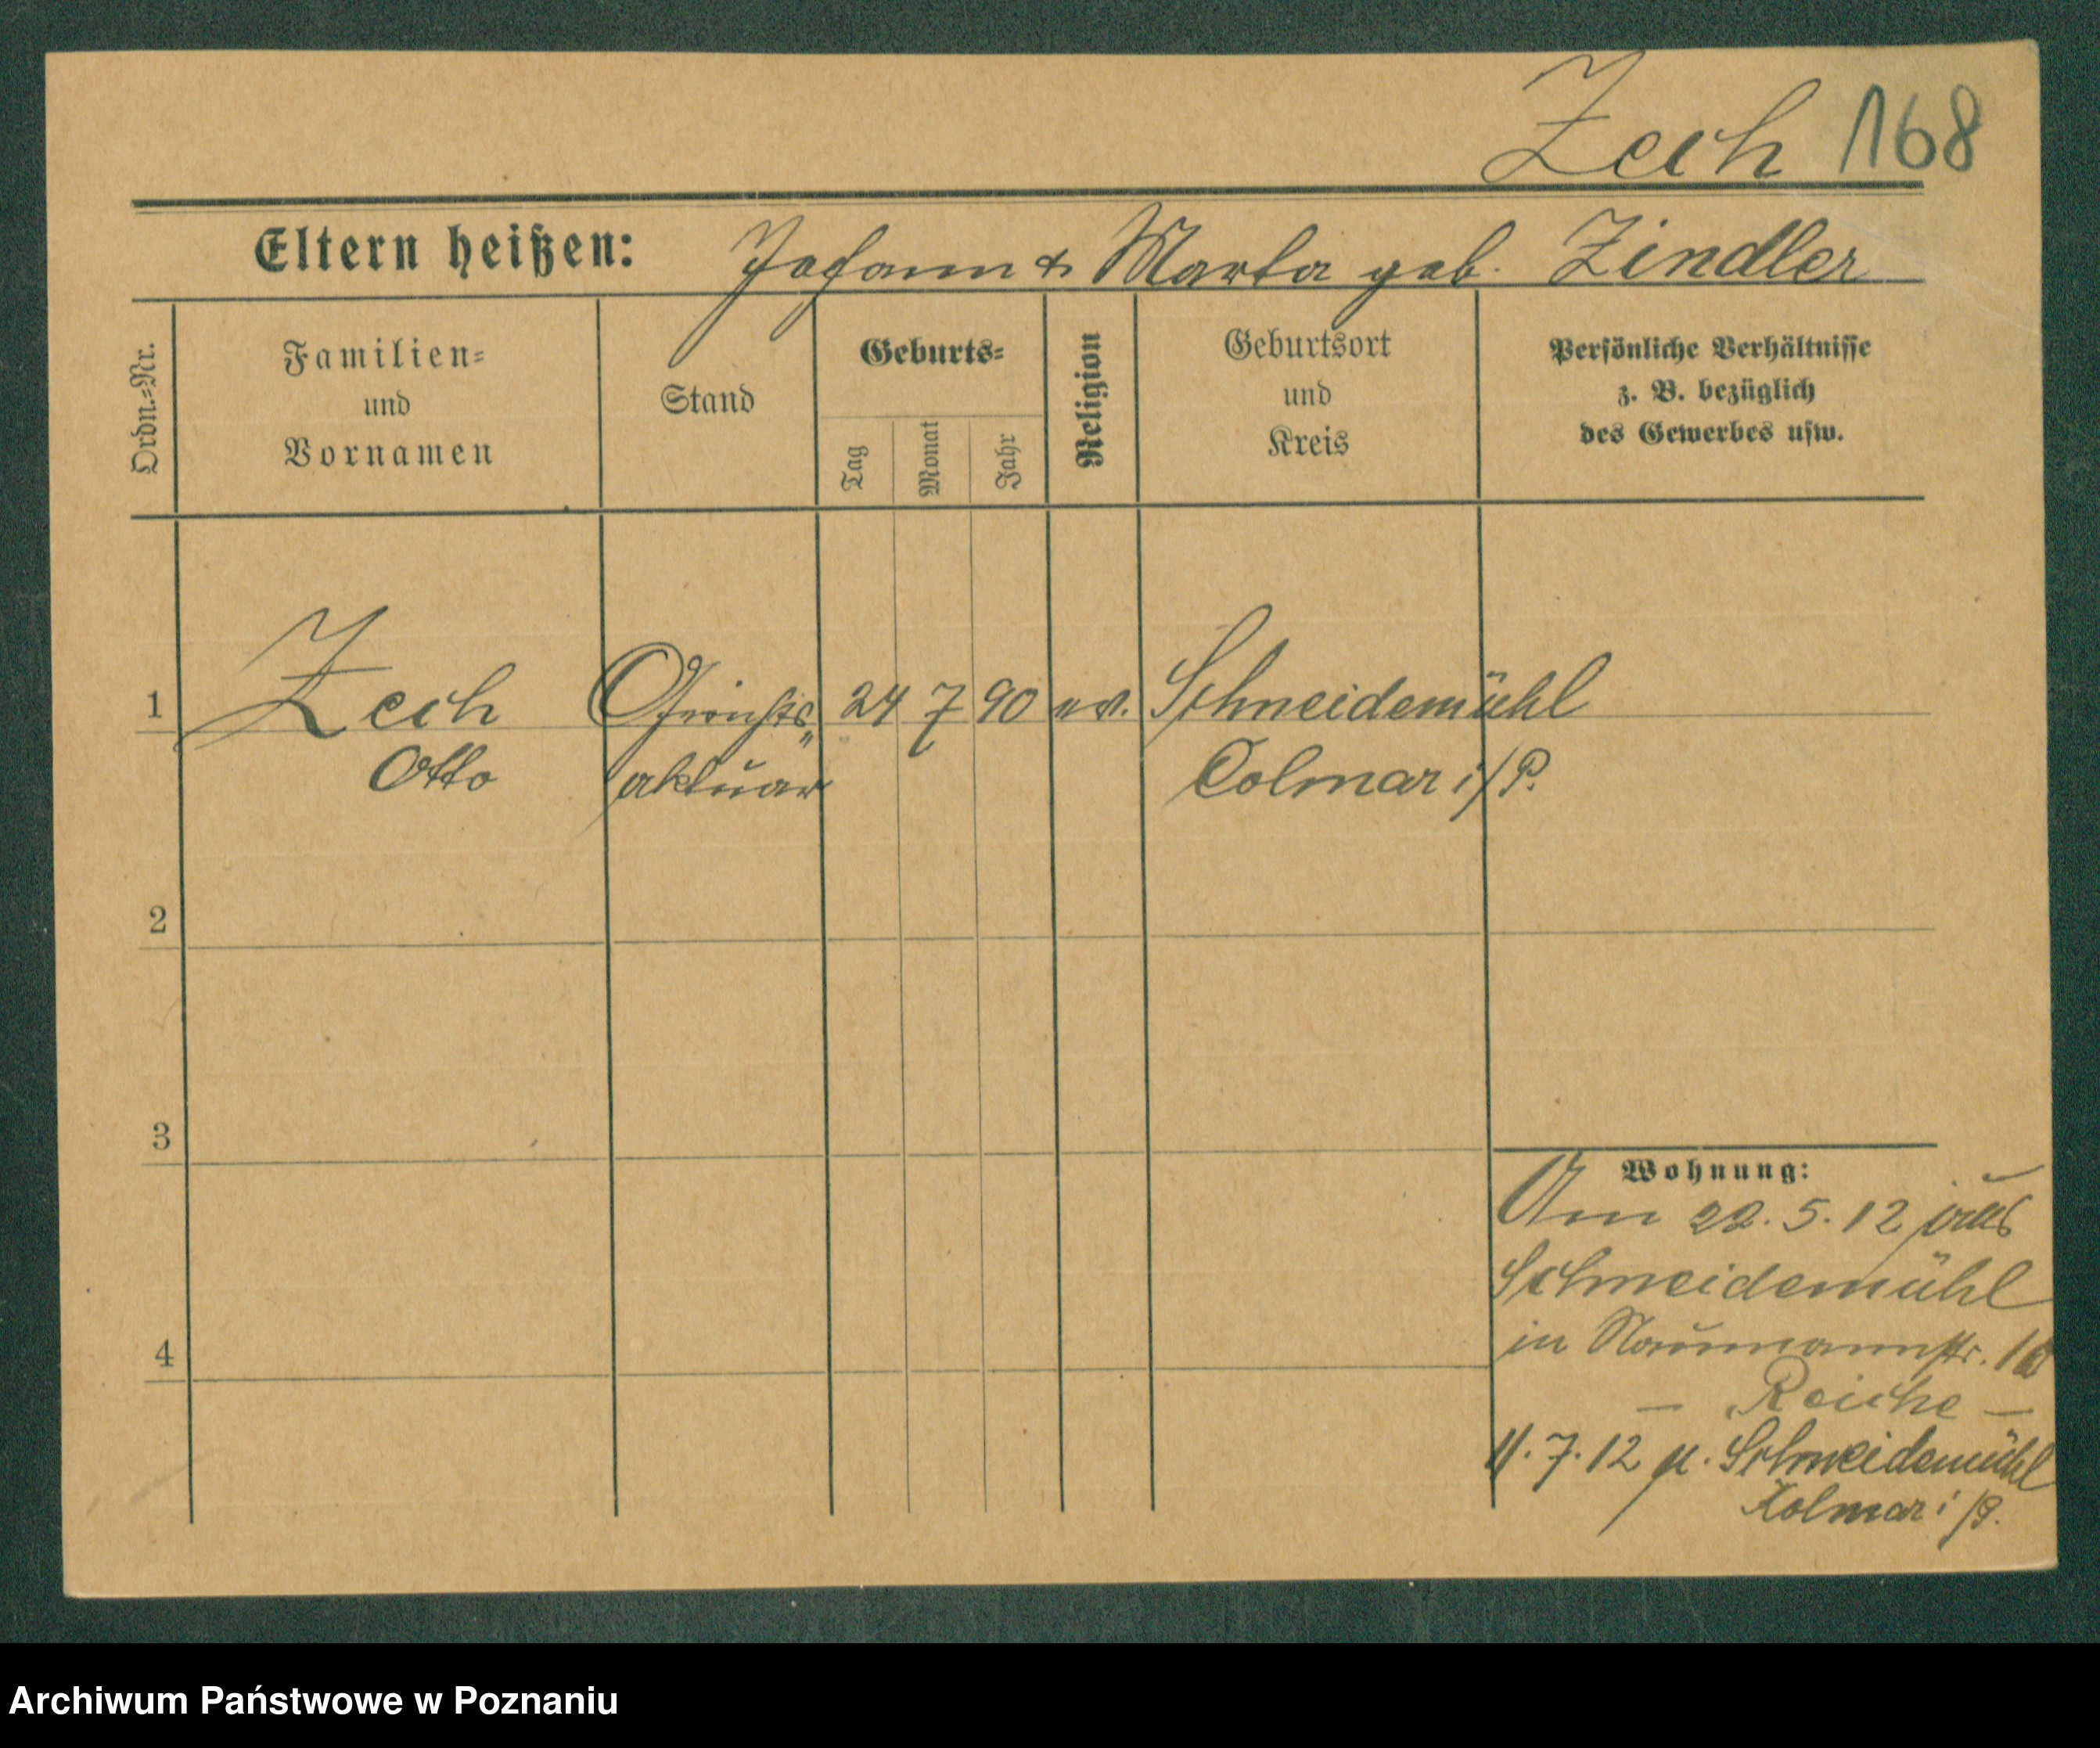 Zech 168
Eltern heißen: Johann & Marta geb. Zindler
Ordn.=Nr.
Familien=
und
Vornamen
Stand
Geburts=
Tag
Monat
Jahr
Religion
Geburtsort
und
Kreis
Persönliche Verhältnisse
z. B. bezüglich
des Gewerbes usw.
1 Zech Gerichts„ 24 7 90 ev. Schneidemühl
Otto aktuar Colmar i/P.
2
3
4
Wohnung:
Am 22. 5. 12
Schneidemühl
in Naumannstr.
— Reiche —
11. 7. 12 n. Schneidemühl
Kolmar i/P.
Archiwum Państwowe w Poznaniu